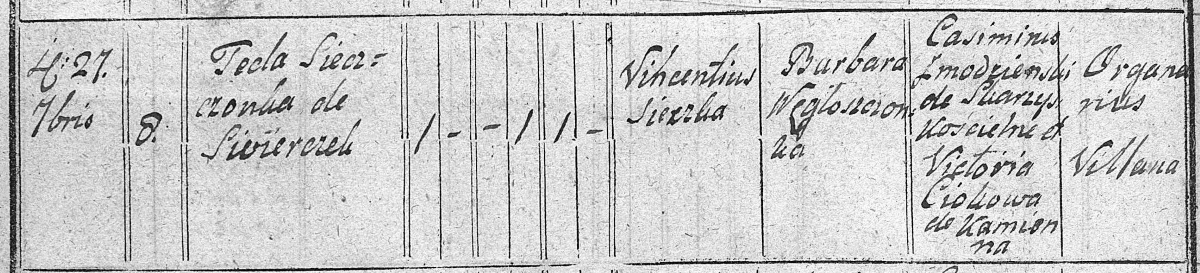 27.
7bris
8.
Tecla Siecz=
czonka de
Siwierczek
1 - - 1 1 -
Vincentius
Sieczka
Barbara
Węgłoszczon
ka
Casimirus
Żmodzienski
de Skarzys
Kościelne &
Victoria
Ciokowa
de Kamion
na
Organa
rius
Villana